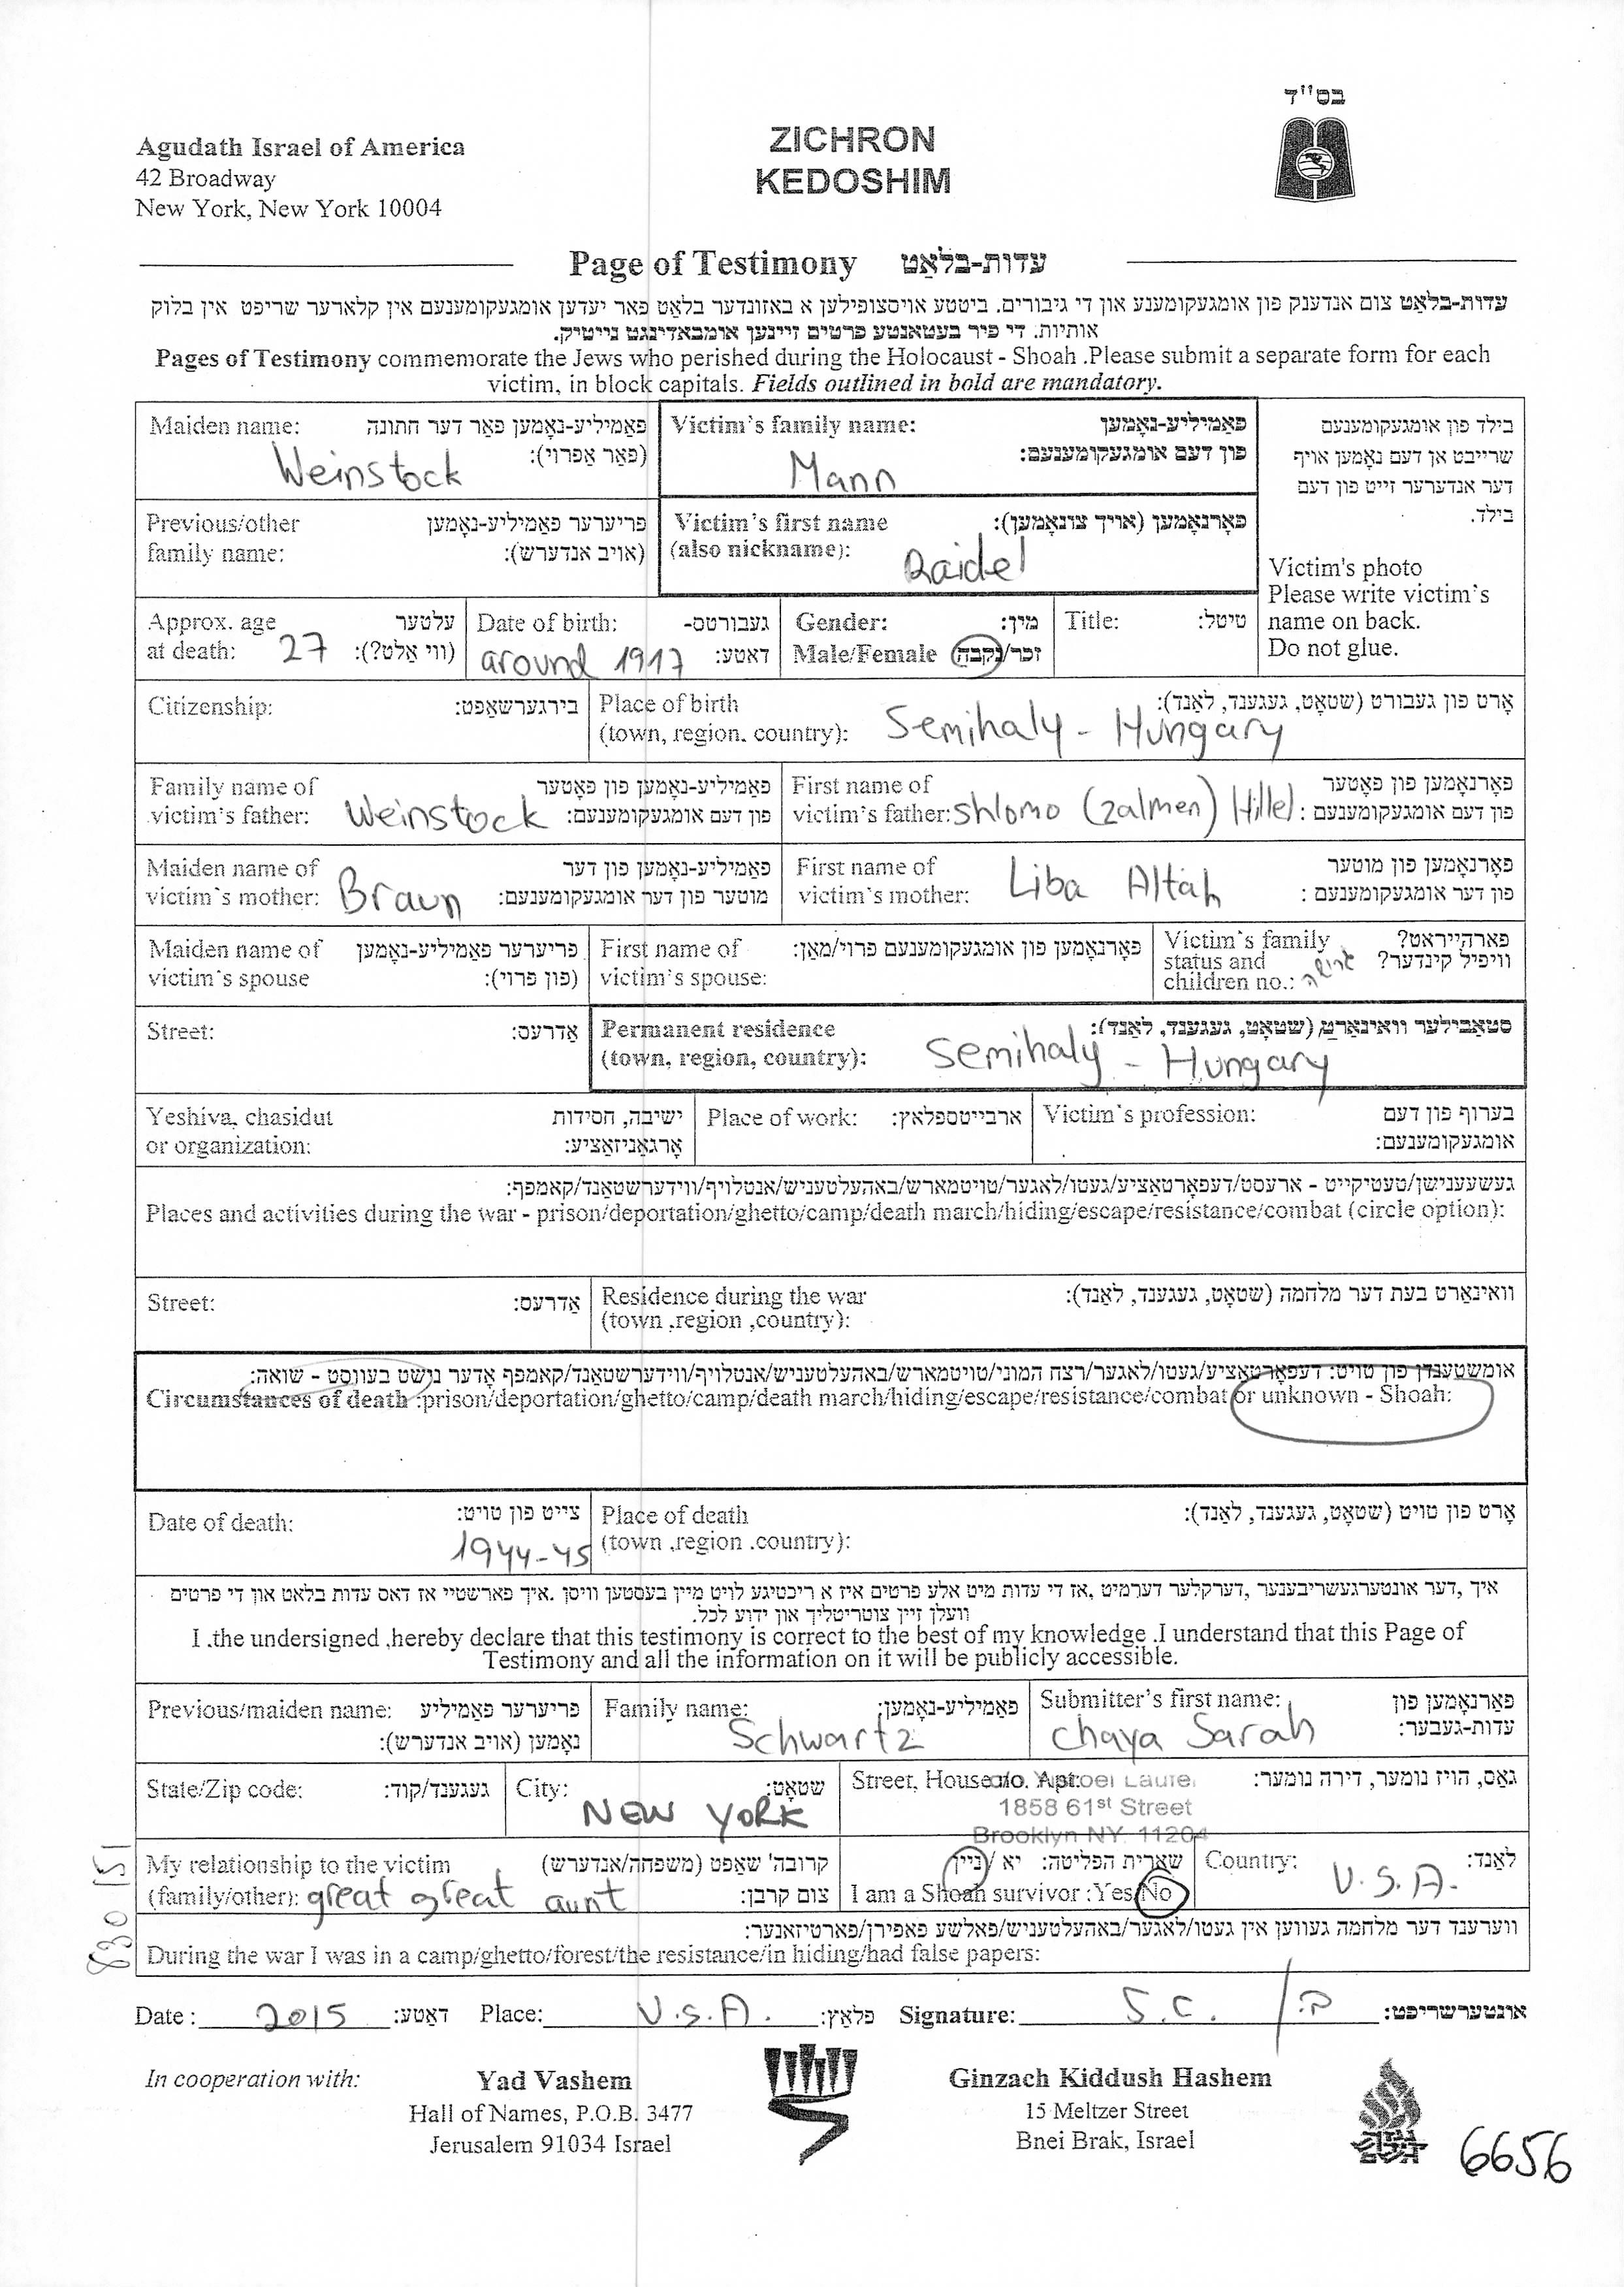 בס"ד
Agudath Israel of America
42 Broadway
New York, New York 10004
ZICHRON
KEDOSHIM
Page of Testimony עדות-בלאַט
עדות-בלאַט צום אנדענק פון אומגעקומענע און די גיבורים. ביטטע אויסצופילען א באזונדער בלאט פאר יעדען אומגעקומענעם אין קלארער שריפט אין בלוק
אותיות. די פיר בעטאנטע פרטים זיינען אומבאדינגט נייטיק.
Pages of Testimony commemorate the Jews who perished during the Holocaust - Shoah .Please submit a separate form for each
victim, in block capitals. Fields outlined in bold are mandatory.
Maiden name: פאַמיליע-נאָמען פאר דער חתונה
(פאר אַפרוי):
Weinstock
Victim's family name: פאַמיליע-נאָמען
פון דעם אומגעקומענעם:
Mann
בילד פון אומגעקומענעם
שרייבט אן דעם נאָמען אויף
דער אנדערער זייט פון דעם
בילד.
Victim's photo
Please write victim's
name on back.
Do not glue.
Previous/other פריערער פאַמיליע-נאָמען
family name: (אויב אנדערש):
Victim's first name פאָרנאָמען (אויך צונאָמען):
(also nickname):
Raidel
Approx. age עלטער
at death: 27 (ווי אַלט?):
Date of birth: געבורטס-
דאטע: around 1917
Gender: מין:
Male/Female זכר/נקבה
Title: טיטל:
Citizenship: בירגערשאַפט:
Place of birth אָרט פון געבורט (שטאָט, געגענד, לאַנד):
(town, region. country): Semihaly - Hungary
Family name of פאַמיליע-נאָמען פון פאָטער
victim's father: Weinstock פון דעם אומגעקומענעם:
First name of פאָרנאָמען פון פאָטער
victim's father: Shlomo (Zalmen) Hillel פון דעם אומגעקומענעם :
Maiden name of פאַמיליע-נאָמען פון דער
victim's mother: Braun מוטער פון דער אומגעקומענעם:
First name of פאָרנאָמען פון מוטער
victim's mother: Liba Altah פון דער אומגעקומענעם :
Maiden name of פריערער פאַמיליע-נאָמען
victim's spouse (פון פרוי):
First name of פאָרנאָמען פון אומגעקומענעם פרוי/מאַן:
victim's spouse:
Victim's family פארהייראט?
status and וויפיל קינדער?
children no.:
Street: אַדרעס:
Permanent residence סטאַבילער וואוינאָרט (שטאָט, געגענד, לאַנד):
(town, region, country): Semihaly - Hungary
Yeshiva, chasidut ישיבה, חסידות
or organization: אָרגאַניזאַציע:
Place of work: ארבייטספלאץ:
Victim's profession: בערוף פון דעם
אומגעקומענעם:
געשעענישן/טעטיקייט - ארעסט/דעפאָרטאַציע/געטו/לאגער/טויטמארש/באהעלטעניש/אנטלויף/ווידערשטאַנד/קאמפף:
Places and activities during the war - prison/deportation/ghetto/camp/death march/hiding/escape/resistance/combat (circle option):
Street: אַדרעס:
Residence during the war וואוינאָרט בעת דער מלחמה (שטאָט, געגענד, לאַנד):
(town ,region ,country):
אומשטענדן פון טויט: דעפאָרטאַציע/געטו/לאגער/רצח המוני/טויטמארש/באהעלטעניש/אנטלויף/ווידערשטאַנד/קאמפף אָדער נישט בעוווסט - שואה:
Circumstances of death :prison/deportation/ghetto/camp/death march/hiding/escape/resistance/combat or unknown - Shoah:
Date of death: צייט פון טויט:
1944-45
Place of death אָרט פון טויט (שטאָט, געגענד, לאַנד):
(town ,region .country):
איך ,דער אונטערגעשריבענער ,דערקלער דערמיט ,אז די עדות מיט אלע פרטים איז א ריכטיגע לויט מיין בעסטען וויסן .איך פארשטיי אז דאס עדות בלאט און די פרטים
וועלן זיין צוטריטליך און ידוע לכל.
I .the undersigned ,hereby declare that this testimony is correct to the best of my knowledge .I understand that this Page of
Testimony and all the information on it will be publicly accessible.
Previous/maiden name: פריערער פאַמיליע
נאָמען (אויב אנדערש):
Family name: פאַמיליע-נאָמען:
Schwartz
Submitter's first name: פאָרנאָמען פון
עדות-געבער:
Chaya Sarah
State/Zip code: געגענד/קוד:
City: שטאָט:
NEW YORK
Street, House no. Apt: גאַס, הויז נומער, דירה נומער:
1858 61st Street
Brooklyn NY 11204
My relationship to the victim קרובה' שאַפט (משפחה/אנדערש)
(family/other): great great aunt צום קרבן:
שארית הפליטה: יא / ניין
I am a Shoah survivor :Yes/No
Country: לאַנד:
U.S.A.
ווערענד דער מלחמה געווען אין געטו/לאגער/באהעלטעניש/פאלשע פאפירן/פארטיזאנער:
During the war I was in a camp/ghetto/forest/the resistance/in hiding/had false papers:
830 151
Date : 2015 דאַטע: Place: U.S.A. פלאַץ: Signature: S.C. אונטערשריפט:
In cooperation with:
Yad Vashem
Hall of Names, P.O.B. 3477
Jerusalem 91034 Israel
Ginzach Kiddush Hashem
15 Meltzer Street
Bnei Brak, Israel
6656